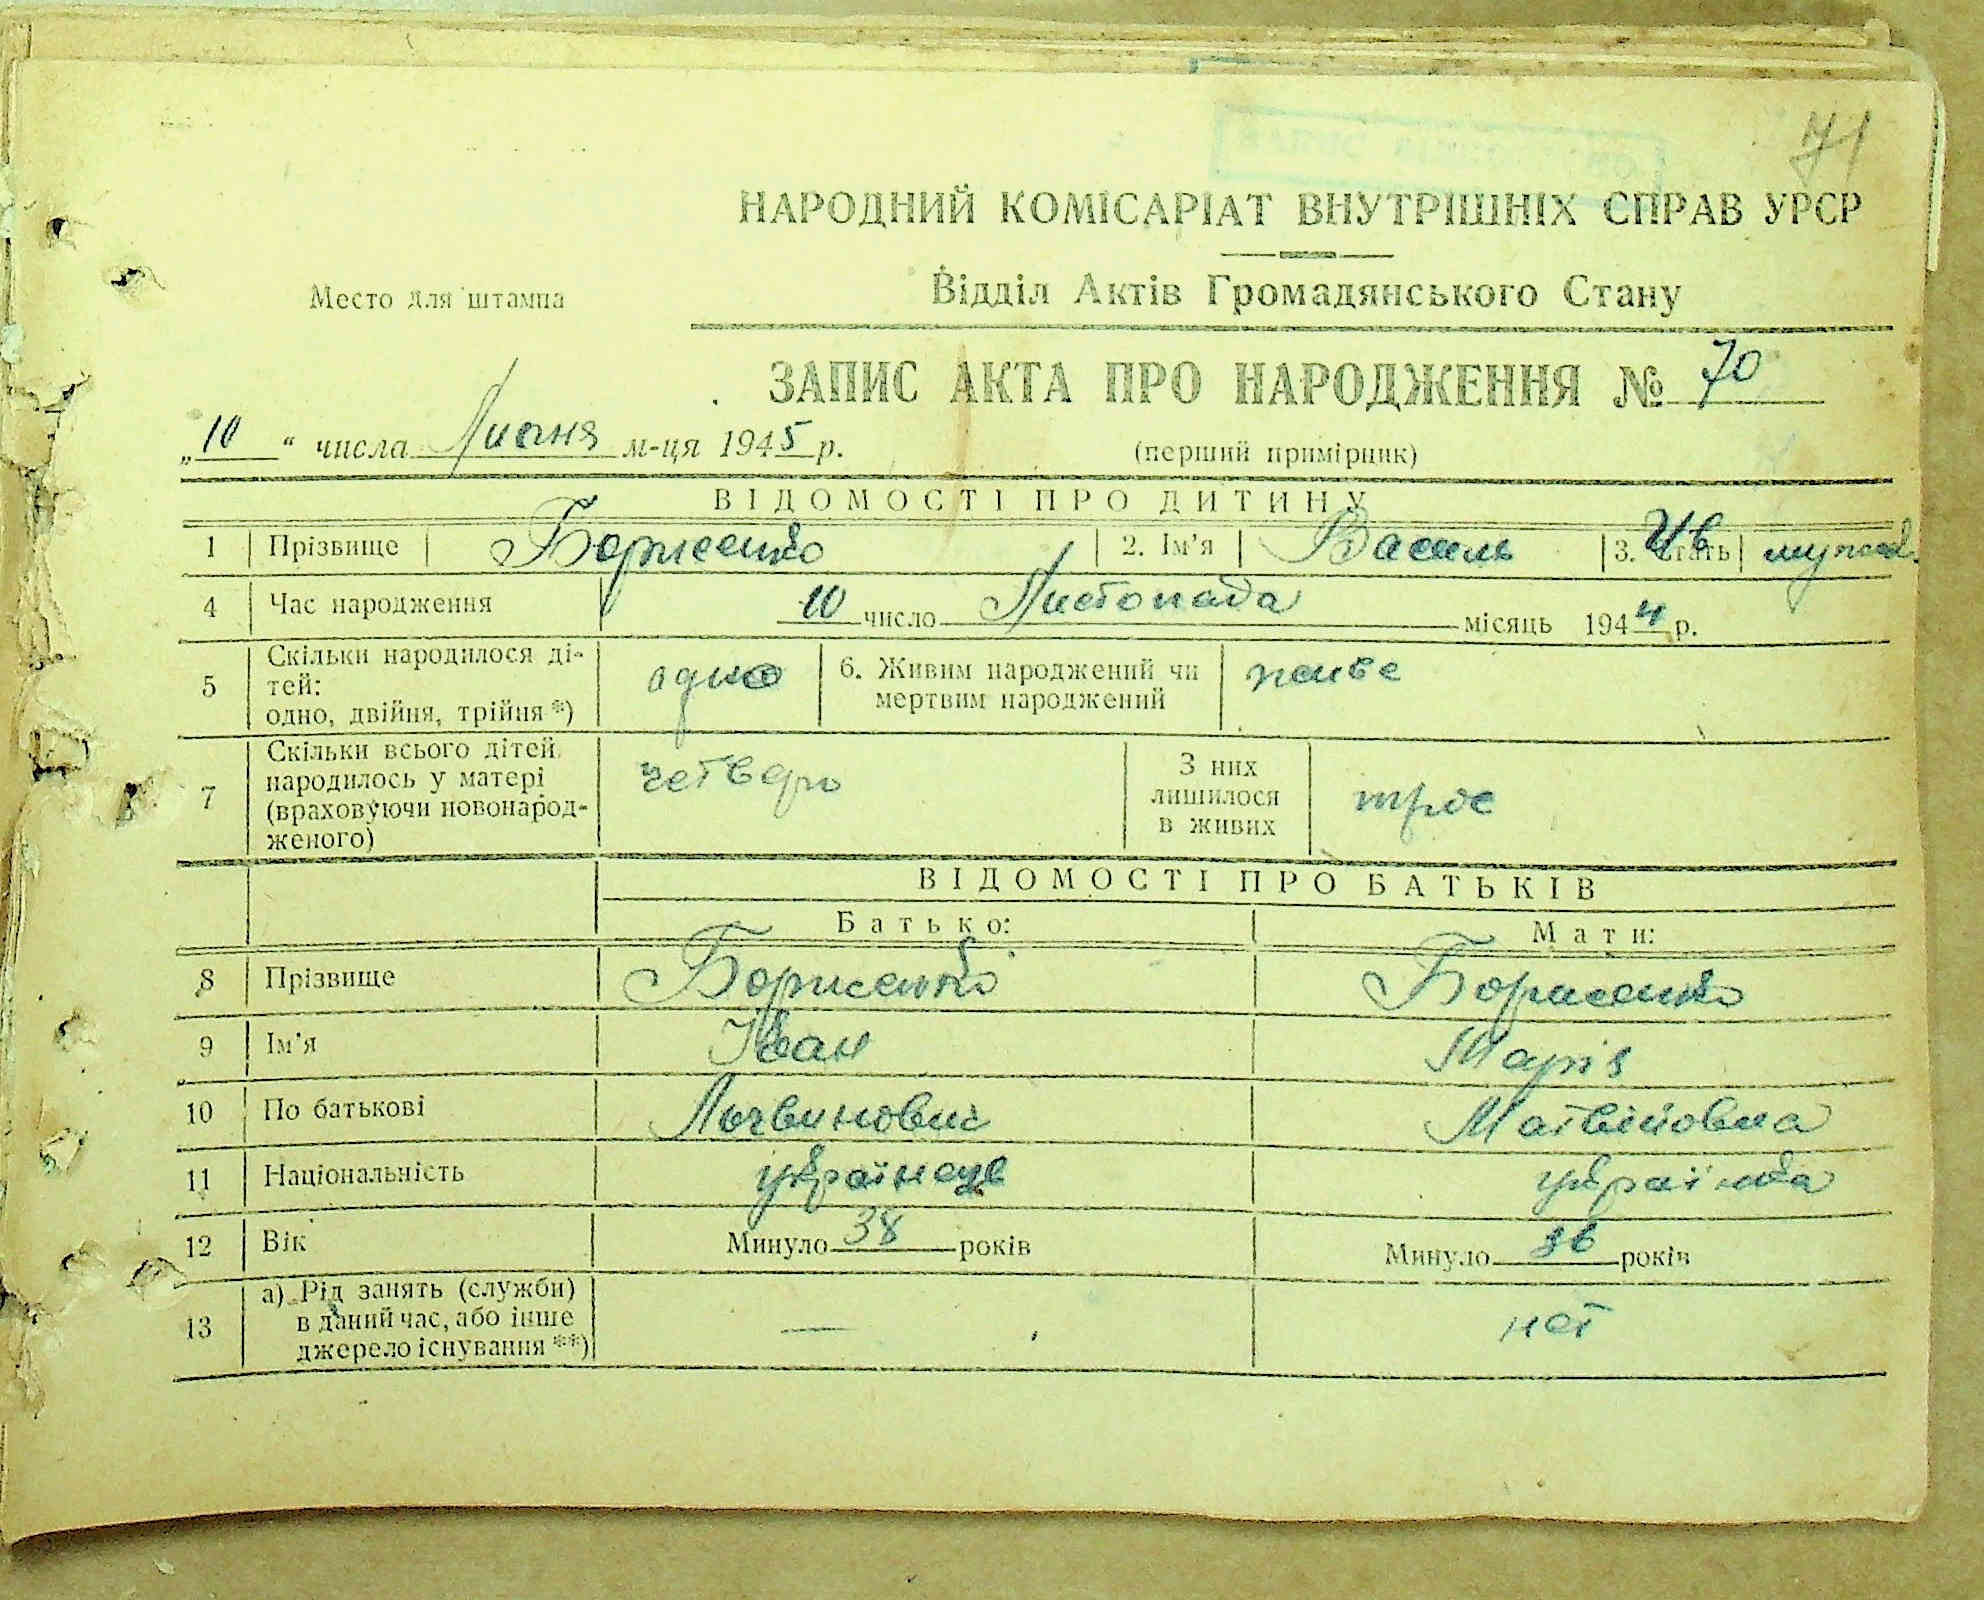 71
НАРОДНИЙ КОМІСАРІАТ ВНУТРІШНІХ СПРАВ УРСР
Место для штампа
Відділ Актів Громадянського Стану
ЗАПИС АКТА ПРО НАРОДЖЕННЯ № 70
„10“ числа Липня м-ця 1945 р.
(перший примірник)
ВІДОМОСТІ ПРО ДИТИНУ
1 Прізвище Борисенко 2. Ім'я Василь 3. Стать
4 Час народження 10 число Листопада місяць 1944 р.
5 Скільки народилося ді-
тей:
одно, двійня, трійня *) одно
6. Живим народжений чи
мертвим народжений живе
7 Скільки всього дітей
народилось у матері
(враховуючи новонарод-
женого) четверо
З них
лишилося
в живих троє
ВІДОМОСТІ ПРО БАТЬКІВ
Батько: Мати:
8 Прізвище Борисенко Борисенко
9 Ім'я Іван Марія
10 По батькові Матвійовна
11 Національність українець українка
12 Вік Минуло 38 років Минуло 36 років
13 а) Рід занять (служби)
в даний час, або інше
джерело існування **) — нет